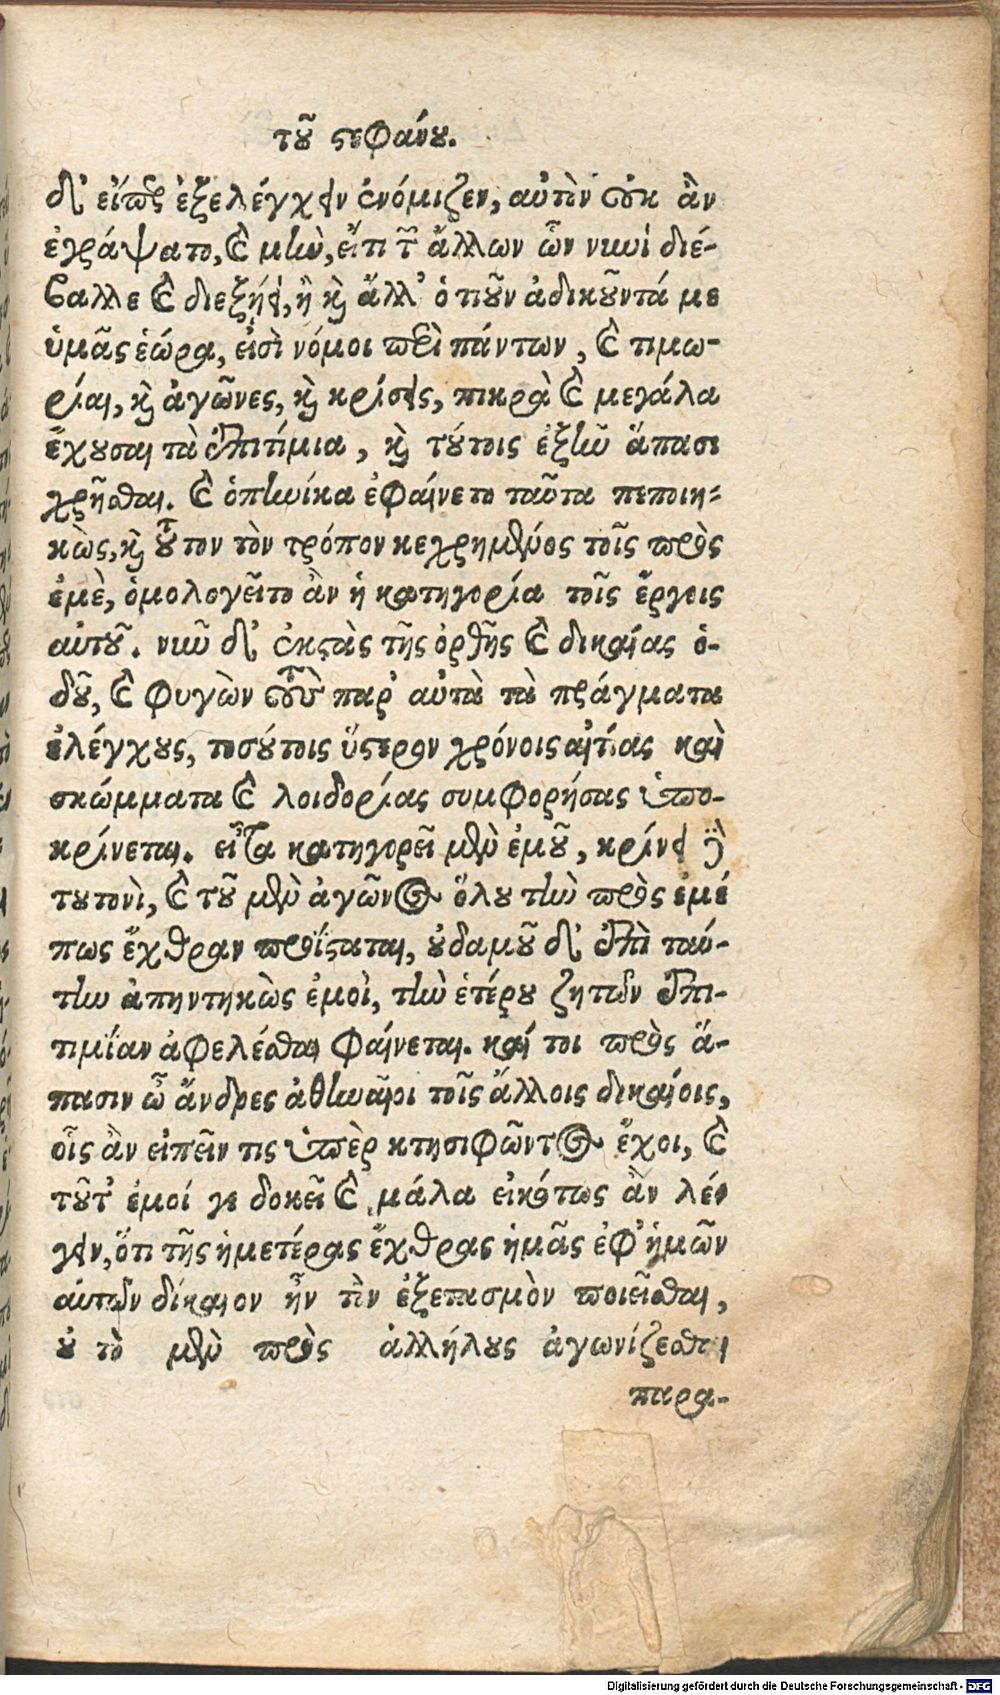 τοῦ στεφάνου.
δι' εἴπερ ἐξελέγχειν ἐνόμιζεν, αὐτὸν οὐκ ἂν
ἐγράψατο, καὶ μὴν, εἴ τι τῶν ἄλλων ὧν νυνὶ διέ-
βαλλε καὶ διεξῄει, ἢ καὶ ἄλλ' ὁτιοῦν ἀδικοῦντά με
ὑμᾶς ἑώρα, εἰσὶ νόμοι περὶ πάντων, καὶ τιμω-
ρίαι, καὶ ἀγῶνες, καὶ κρίσεις, πικρὰ καὶ μεγάλα
ἔχουσαι τὰ ἐπιτίμια, καὶ τούτοις ἐξῆν ἅπασι
χρῆσθαι. καὶ ὁπηνίκα ἐφαίνετο ταῦτα πεποιη-
κὼς, καὶ τοῦτον τὸν τρόπον κεχρημένος τοῖς πρὸς
ἐμὲ, ὁμολογεῖτο ἂν ἡ κατηγορία τοῖς ἔργοις
αὐτοῦ. νῦν δ' ἐκστὰς τῆς ὀρθῆς καὶ δικαίας ὁ-
δοῦ, καὶ φυγὼν τοὺς παρ' αὐτὰ τὰ πράγματα
ἐλέγχους, τοσούτοις ὕστερον χρόνοις αἰτίας καὶ
σκώμματα καὶ λοιδορίας συμφορήσας ὑπο-
κρίνεται. εἶτα κατηγορεῖ μὲν ἐμοῦ, κρίνει δὲ
τουτονὶ, καὶ τοῦ μὲν ἀγῶνος ὅλου τὴν πρὸς ἐμέ
πως ἔχθραν προΐσταται, οὐδαμοῦ δ' ἐπὶ ταύ-
την ἀπηντηκὼς ἐμοὶ, τὴν ἑτέρου ζητῶν ἐπι-
τιμίαν ἀφελέσθαι φαίνεται. καί τοι πρὸς ἅ-
πασιν ὦ ἄνδρες ἀθηναῖοι τοῖς ἄλλοις δικαίοις,
οἷς ἂν εἰπεῖν τις ὑπὲρ κτησιφῶντος ἔχοι, καὶ
τοῦτ' ἐμοί γε δοκεῖ καὶ μάλα εἰκότως ἂν λέ-
γειν, ὅτι τῆς ἡμετέρας ἔχθρας ἡμᾶς ἐφ' ἡμῶν
αὐτῶν δίκαιον ἦν τὸν ἐξετασμὸν ποιεῖσθαι,
οὐ τὸ μὲν πρὸς ἀλλήλους ἀγωνίζεσθαι
παρα-
Digitalisierung gefördert durch die Deutsche Forschungsgemeinschaft - DFG